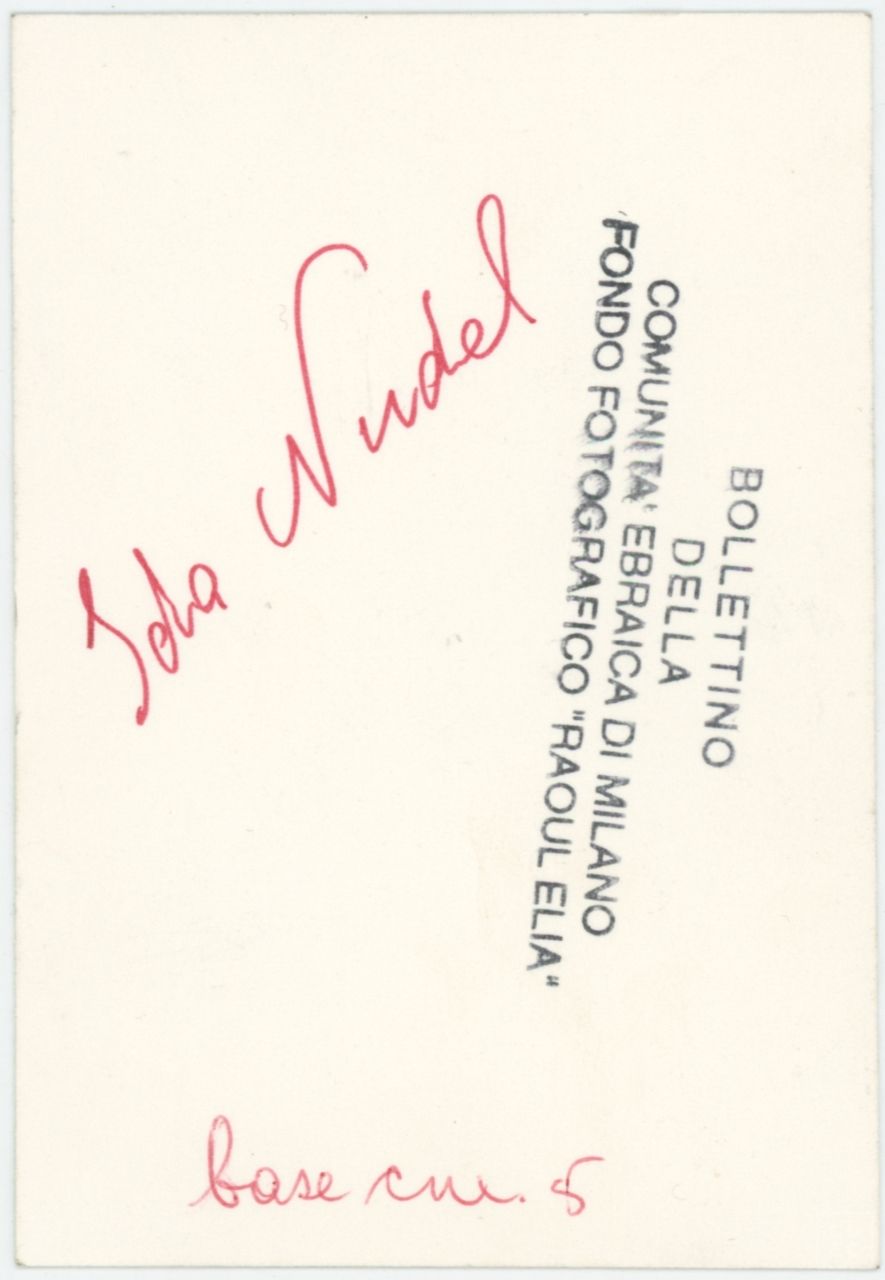 Ida Nudel
BOLLETTINO
DELLA
COMUNITA' EBRAICA DI MILANO
FONDO FOTOGRAFICO "RAOUL ELIA"
base cm. 5